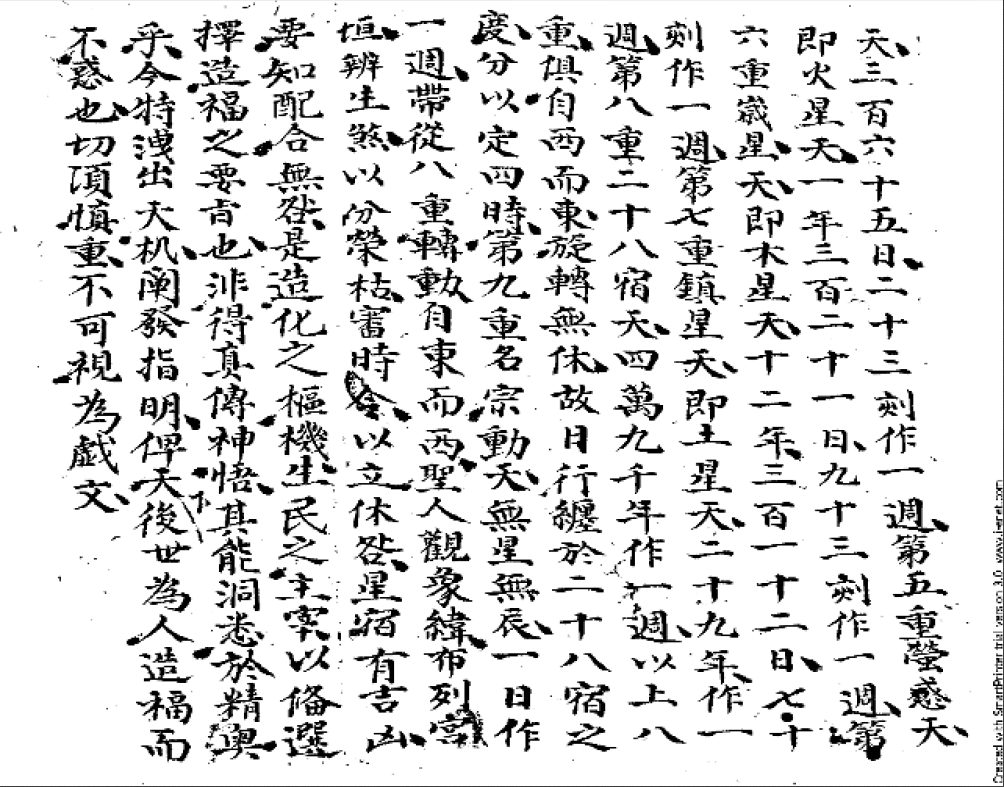 天三百六十五日二十三刻作一週第五重螢惑天
即火星天一年三百二十一日九十三刻作一週第
六重嵗星天即木星天十二年三百一十二日七十
刻作一週第七重鎮星天即土星天二十九年作一
週第八重二十八宿天四萬九千年作一週以上八
重俱自西而東旋轉無休故日行纏於二十八宿之
度分以定四時第九重名宗動天無星無辰一日作
一週帶從八重轉動自東而西聖人觀象緯布列宮
垣辨生煞以分榮枯審時令以立休咎星宿有吉凶
要知配合無咎是造化之樞機生民之主宰以俻選
擇造福之要旨也非得真傳神悟其能洞悉於精奥
乎今特洩出天机阐發指明俾天下後世為人造福而
不惑也切須慎重不可視為戯文
Created with SmartPrinter trial version 3.0 www.i-enet.com